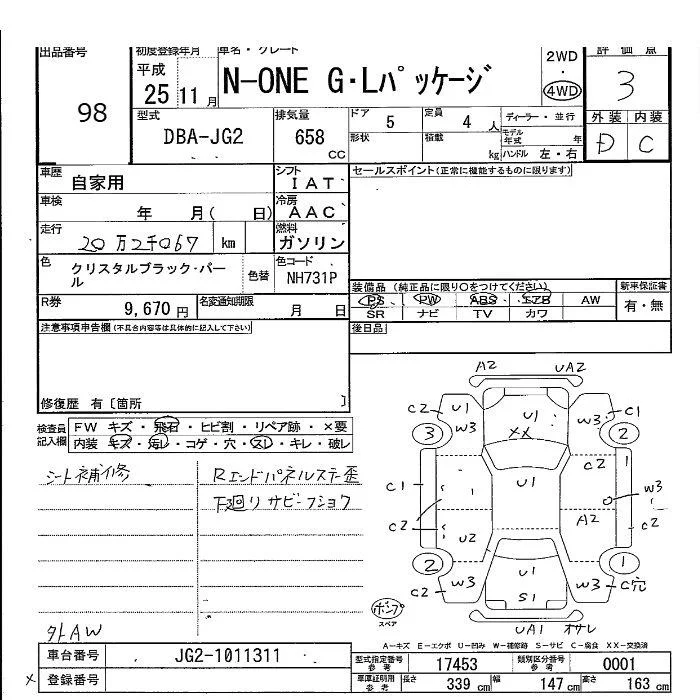 出品番号 初度登録年月 車名・グレード 評価点
98
平成
25 11 月
N-ONE G・Lパッケージ
2WD
・
4WD
3
型式 排気量 ドア 5 定員 4 人 ディーラー・並行 外装 内装
DBA-JG2 658 CC
形状 積載 kg モデル年式 年
ハンドル 左・右
D C
車歴 自家用 シフト IAT セールスポイント(正常に機能するものに限ります)
車検 年 月( 日) 冷房 AAC
走行 20万2千067 km 燃料 ガソリン
色 クリスタルブラック・パール 色替 色コード NH731P
装備品(純正品に限り○をつけてください) 新車保証書
PS PW ABS エアB AW 有・無
SR ナビ TV カワ
R券 9,670円 名変通知期限 月 日
後日品
注意事項申告欄(不具合内容等は具体的に記入して下さい)
修復歴 有〔箇所 〕
検査員記入欄 FW キズ・飛石・ヒビ割・リペア跡・×要
内装 キズ・汚レ・コゲ・穴・スレ・キレ・破レ
シート補修 Rエンドパネルステー歪
下廻りサビ・フショク
外AW
A2 UA2
C2 U1 W3 U1 XX W3 C1
3 2
C1 U1 C2 W3
C2 U2 A2 C2
2 1
C2 W3 U1 S1 W3 C穴
ポンプ
スペア
UA1 オサレ
A－キズ E－エクボ U－凹み W－補修跡 S－サビ C－腐食 XX－交換済
車台番号 JG2-1011311 型式指定番号 参考 17453 類別区分番号 参考 0001
× 登録番号 車庫証明用 参考 長さ 339 cm 幅 147 cm 高さ 163 cm